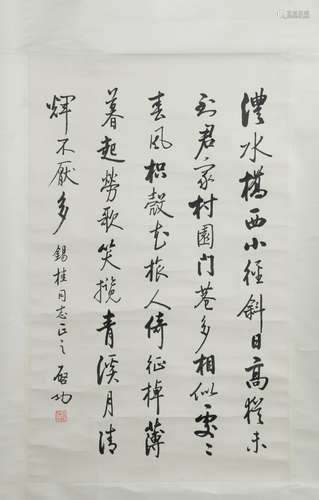 澧水橋西小徑斜日高猶未
到君家村園门巷多相似處〻
春風枳殼花旅人倚征棹薄
暮起勞歌笑攬青溪月清
輝不厭多 錫桂同志正之 启功